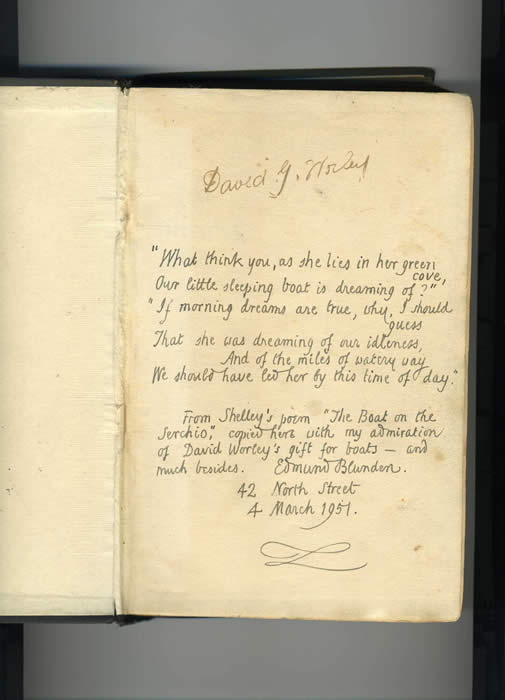 David G. Worley
"What think you, as she lies in her green
cove,
Our little sleeping boat is dreaming of?"
"If morning dreams are true, why, I should
guess
That she was dreaming of our idleness,
And of the miles of watery way
We should have led her by this time of day."
From Shelley's poem "The Boat on the
Serchio", copied here with my admiration
of David Worley's gift for boats — and
much besides. Edmund Blunden.
42 North Street
4 March 1951.